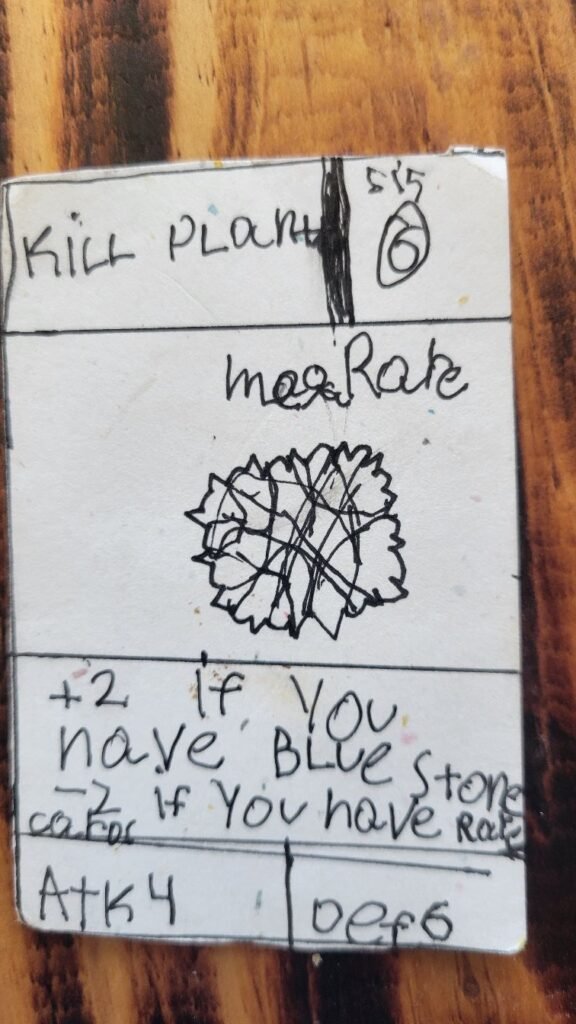 KiLL PLant
6
Rare
+2 If You
have BLUE Stone
-2 If You have Rare
Atk 4
Def 6